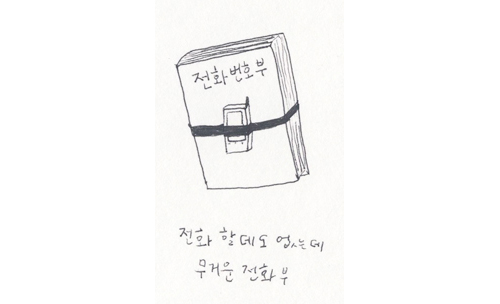 전화번호부
전화 할데도 없는데
무거운 전화부